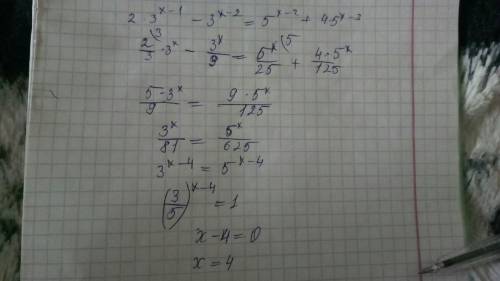 2 · 3^{x-1} - 3^{x-2} = 5^{x-2} + 4·5^{x-3}
\frac{2}{3}^{(3} · 3^x - \frac{3^x}{9} = \frac{5^x}{25}^{(5} + \frac{4·5^x}{125}
\frac{5·3^x}{9} = \frac{9·5^x}{125}
\frac{3^x}{81} = \frac{5^x}{625}
3^{x-4} = 5^{x-4}
(\frac{3}{5})^{x-4} = 1
x-4=0
x=4